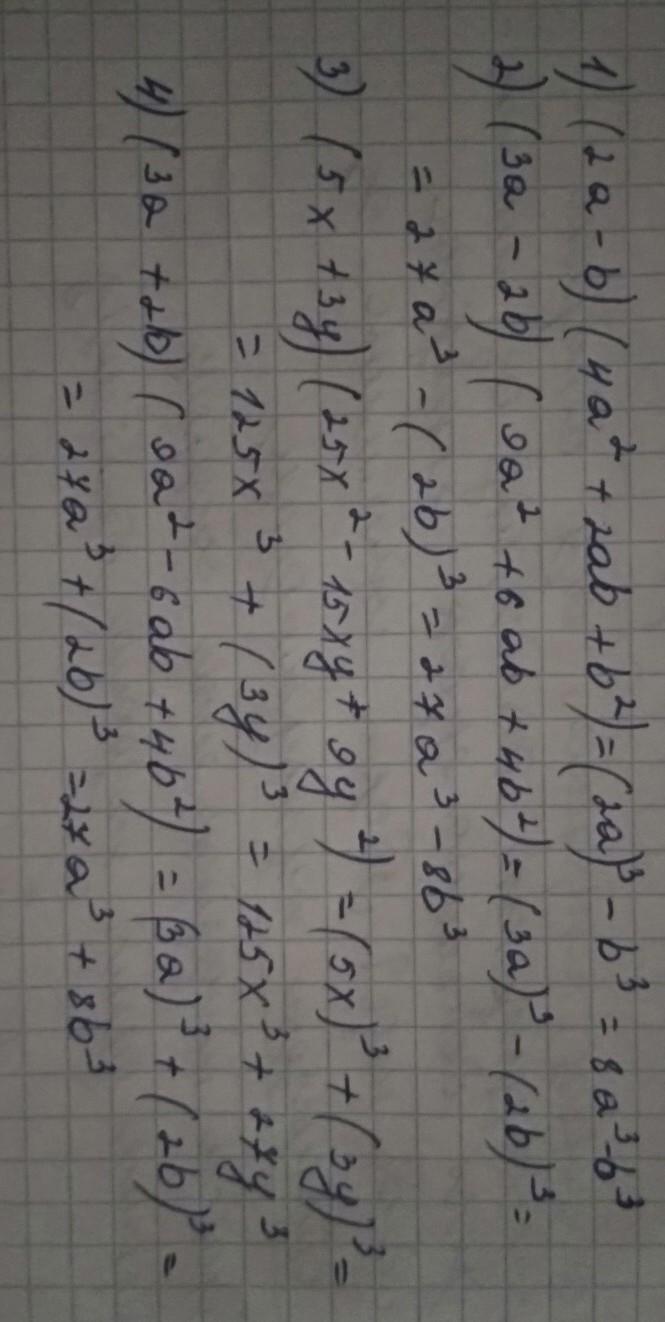 1) (2a - b) (4a² + 2ab + b²) = (2a)³ - b³ = 8a³-b³
2) (3a - 2b) (9a² + 6ab + 4b²) = (3a)³ - (2b)³ =
= 27a³ - (2b)³ = 27a³ - 8b³
3) (5x + 3y) (25x² - 15xy + 9y²) = (5x)³ + (3y)³ =
= 125x³ + (3y)³ = 125x³ + 27y³
4) (3a + 2b) (9a² - 6ab + 4b²) = (3a)³ + (2b)³ =
= 27a³ + (2b)³ = 27a³ + 8b³